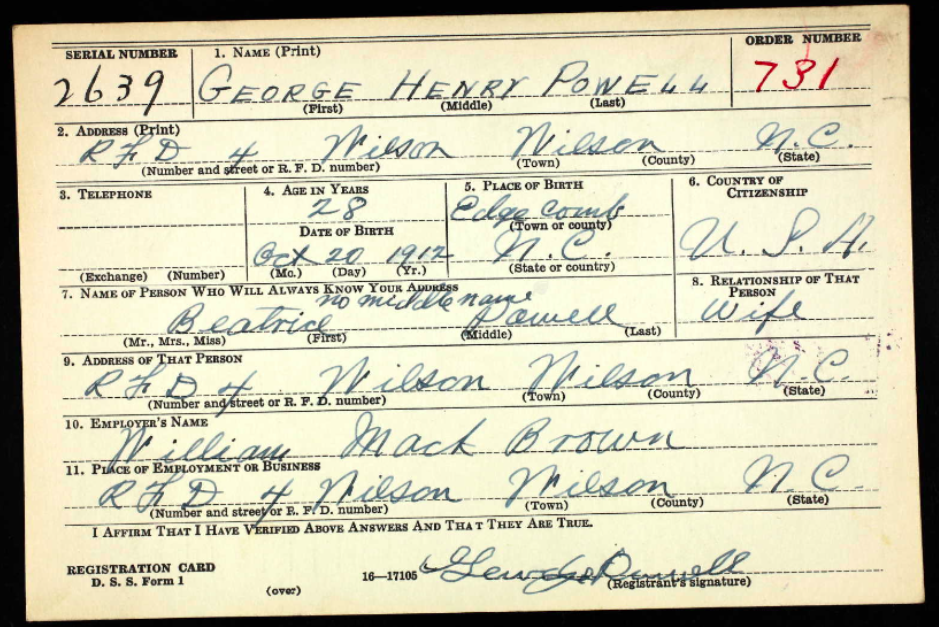 SERIAL NUMBER 1. NAME (Print) ORDER NUMBER
2639 GEORGE HENRY POWELL 731
(First) (Middle) (Last)
2. ADDRESS (Print)
R F D 4 Wilson Wilson N.C.
(Number and street or R. F. D. number) (Town) (County) (State)
3. TELEPHONE 4. AGE IN YEARS 5. PLACE OF BIRTH 6. COUNTRY OF CITIZENSHIP
28 Edgecomb
DATE OF BIRTH (Town or county)
Oct 20 1912 N.C. U. S. A.
(Exchange) (Number) (Mo.) (Day) (Yr.) (State or country)
7. NAME OF PERSON WHO WILL ALWAYS KNOW YOUR ADDRESS 8. RELATIONSHIP OF THAT PERSON
no middle name
Beatrice Powell Wife
(Mr., Mrs., Miss) (First) (Middle) (Last)
9. ADDRESS OF THAT PERSON
R F D 4 Wilson Wilson N.C.
(Number and street or R. F. D. number) (Town) (County) (State)
10. EMPLOYER'S NAME
William Mack Brown
11. PLACE OF EMPLOYMENT OR BUSINESS
R F D 4 Wilson Wilson N.C.
(Number and street or R. F. D. number) (Town) (County) (State)
I AFFIRM THAT I HAVE VERIFIED ABOVE ANSWERS AND THAT THEY ARE TRUE.
REGISTRATION CARD
D. S. S. Form 1 16—17105 George Powell
(over) (Registrant's signature)